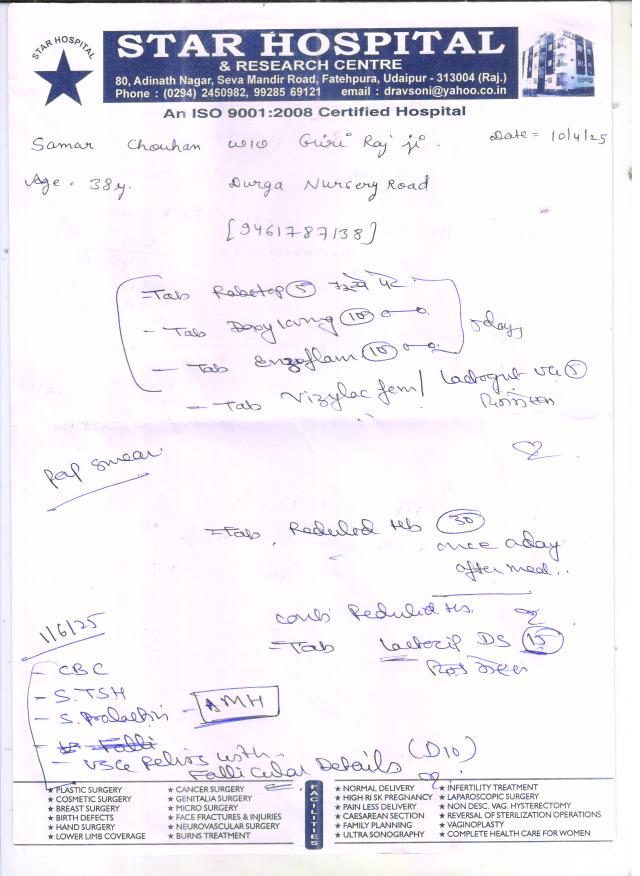 STAR HOSPITAL
STAR HOSPITAL
& RESEARCH CENTRE
80, Adinath Nagar, Seva Mandir Road, Fatehpura, Udaipur - 313004 (Raj.)
Phone : (0294) 2450982, 99285 69121 email : dravsoni@yahoo.co.in
An ISO 9001:2008 Certified Hospital
Samar Chouhan w/o Giri Raj ji. Date = 10/4/25
Age = 38y. Durga Nursery Road
[9461787138]
- Tab 5
- Tab 10 days
- Tab Enzoflam 10
- Tab Vizylac fem / 5
Pap smear
- Tab Reduled Hb 30
once a day
after meal..
1/6/25
Reduled Hb.
- Tab Lactozip DS 15
- CBC
- S.TSH
- S. Prolactin - AMH
- Pelvis with
Follicular Details (D10)
FACILITIES
★ PLASTIC SURGERY ★ CANCER SURGERY ★ NORMAL DELIVERY ★ INFERTILITY TREATMENT
★ COSMETIC SURGERY ★ GENITALIA SURGERY ★ HIGH RISK PREGNANCY ★ LAPAROSCOPIC SURGERY
★ BREAST SURGERY ★ MICRO SURGERY ★ PAIN LESS DELIVERY ★ NON DESC. VAG. HYSTERECTOMY
★ BIRTH DEFECTS ★ FACE FRACTURES & INJURIES ★ CAESAREAN SECTION ★ REVERSAL OF STERILIZATION OPERATIONS
★ HAND SURGERY ★ NEUROVASCULAR SURGERY ★ FAMILY PLANNING ★ VAGINOPLASTY
★ LOWER LIMB COVERAGE ★ BURNS TREATMENT ★ ULTRA SONOGRAPHY ★ COMPLETE HEALTH CARE FOR WOMEN